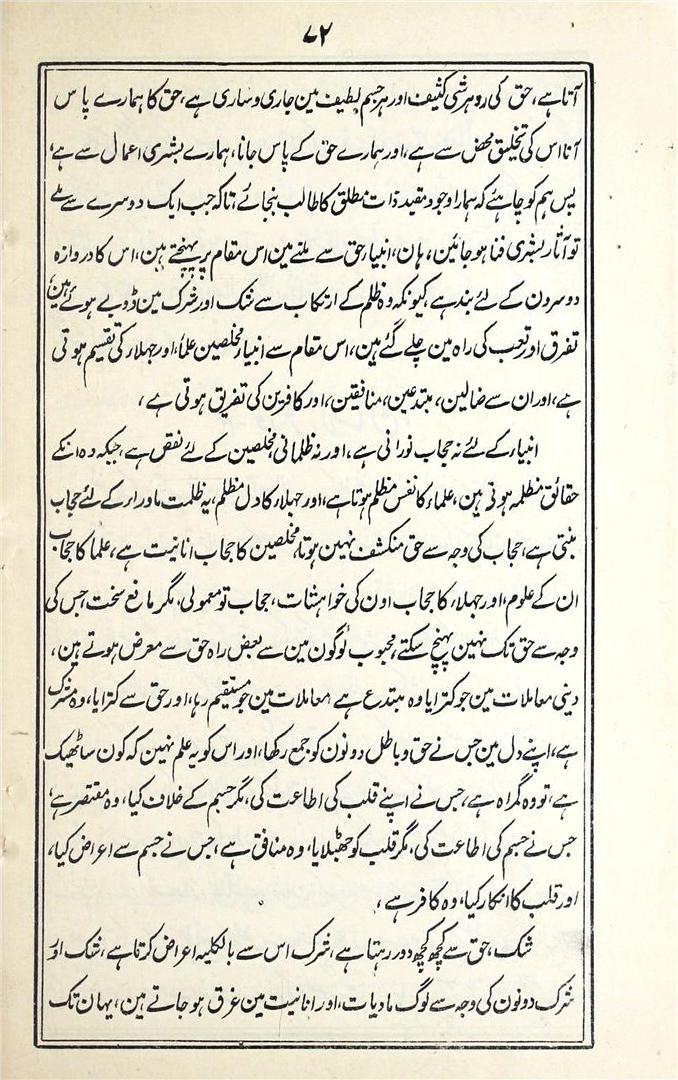 ۷۲
آتا ہے، حق کی رو ہر شی کثیف اور ہر جسم لطیف مین جاری و ساری ہے، حق کا ہمارے پاس
آنا اس کی تخلیق محض سے ہے، اور ہمارے حق کے پاس جانا، ہمارے بشری اعمال سے ہے،
پس ہم کو چاہئے کہ ہمارا وجود مقید ذات مطلق کا طالب بنجائے، تاکہ جب ایک دوسرے سے ملے
تو آثار بشری فنا ہو جائین، ہان، انبیا، حق سے ملنے مین اس مقام پر پہنچتے ہین، اس کا دروازہ
دوسرون کے لئے بند ہے، کیونکہ وہ ظلم کے ارتکاب سے شک اور شرک مین ڈوبے ہوئے ہین،
تفرق اور تعب کی راہ مین چلے گئے ہین، اس مقام سے انبیاء، مخلصین علماء، اور جہلاء کی تقسیم ہوتی
ہے، اور ان سے ضالین، مبتدعین، منافقین، اور کافرین کی تفریق ہوتی ہے،
انبیاء کے لئے نہ حجاب نورانی ہے، اور نہ ظلمانی، مخلصین کے لئے نقص ہے، جبکہ وہ انکے
حقائق مظلمہ ہوتی ہین، علماء کا نفس مظلم ہوتا ہے، اور جہلاء کا دل مظلم، یہ ظلمت ماوراء کے لئے حجاب
بنتی ہے، حجاب کی وجہ سے حق منکشف نہین ہوتا، مخلصین کا حجاب انانیت ہے، علما کا حجاب
ان کے علوم، اور جہلاء کا حجاب اون کی خواہشات، حجاب تو معمولی، مگر مانع سخت، جس کی
وجہ سے حق تک نہین پہنچ سکتے، محجوب لوگون مین سے بعض راہ حق سے معرض ہوتے ہین،
دینی معاملات مین جو کترایا وہ مبتدع ہے معاملات مین جو مستقیم رہا، اور حق سے کترایا، وہ مشرک
ہے، اپنے دل مین جس نے حق و باطل دونون کو جمع رکھا، اور اس کو یہ علم نہین کہ کون سا ٹھیک
ہے، تو وہ گمراہ ہے، جس نے اپنے قلب کی اطاعت کی، مگر جسم کے خلاف کیا، وہ مقتصر ہے،
جس نے جسم کی اطاعت کی، مگر قلب کو جھٹلایا، وہ منافق ہے، جس نے جسم سے اعراض کیا،
اور قلب کا انکار کیا، وہ کافر ہے،
شک، حق سے کچھ کچھ دور رہتا ہے، شرک اس سے بالکلیہ اعراض کرتا ہے، شک اور
شرک دونون کی وجہ سے لوگ مادیات، اور انانیت مین غرق ہو جاتے ہین، یہان تک